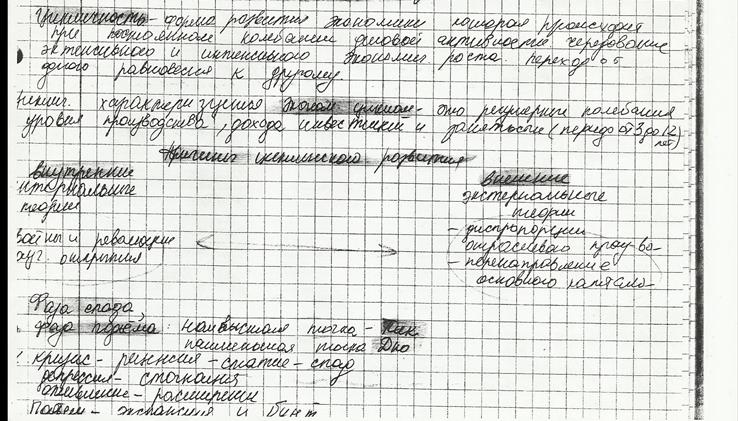 Цикличность - форма развития экономики которая происходит
при постоянном колебании деловой активности чередование
экстенсивного и интенсивного экономич роста. переход от
одного равновесия к другому.
характеризуется эконом циклом - это регулярные колебания
уровня производства, дохода инвестиций и занятости (период от 3 до 12
лет)
Причины циклического развития
Внутренние
интернальные
теории
Внешние
экстернальные
теории
войны и революции
открытия
- диспропорции
отраслевого произ-во
- перенаправление
основного капитала-
Фаза спада,
фаза подъёма: наивысшая точка - Пик
точка Дно
кризис - рецессия - сжатие - спад
депрессия - стогнация
оживление - расширение
Подъем - экспансия и бинт